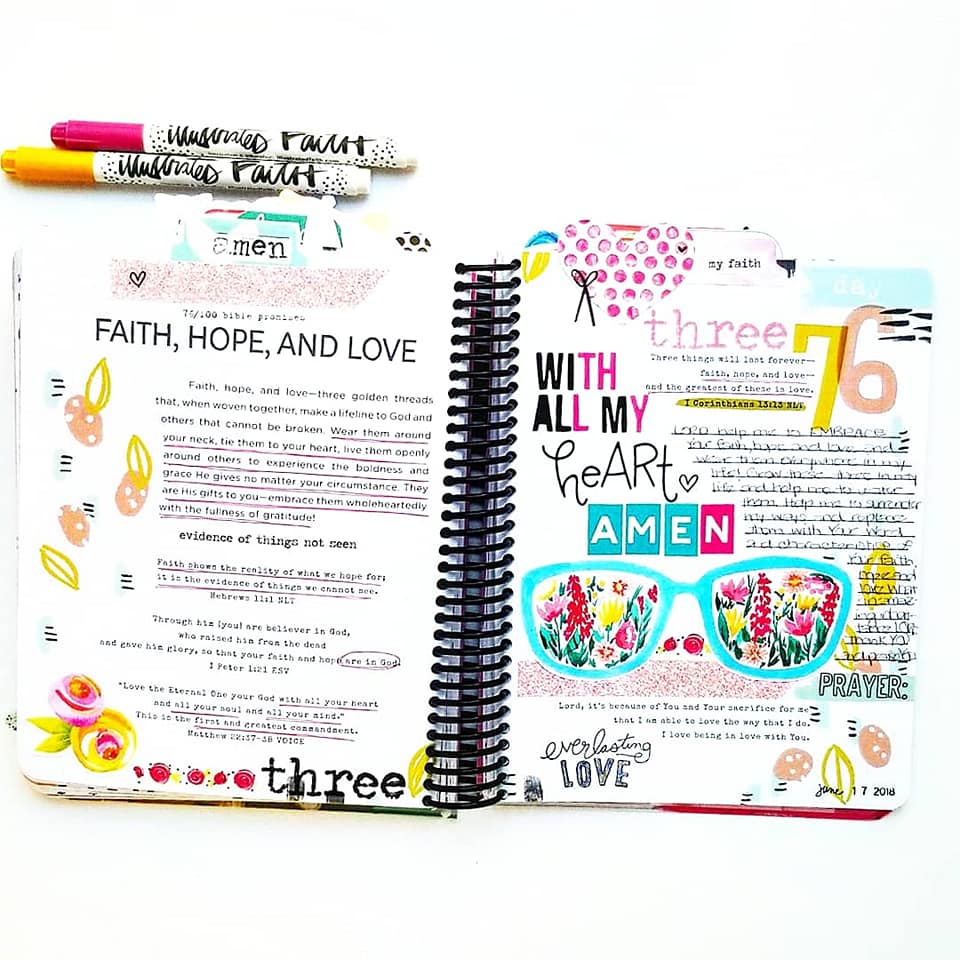 illustrated FAITH
illustrated FAITH
amen
76/100 bible promises
FAITH, HOPE, AND LOVE
Faith, hope, and love—three golden threads
that, when woven together, make a lifeline to God and
others that cannot be broken. Wear them around
your neck, tie them to your heart, live them openly
around others to experience the boldness and
grace He gives no matter your circumstance. They
are His gifts to you—embrace them wholeheartedly
with the fullness of gratitude!
evidence of things not seen
Faith shows the reality of what we hope for;
it is the evidence of things we cannot see.
Hebrews 11:1 NLT
Through him [you] are believer in God,
who raised him from the dead
and gave him glory, so that your faith and hope are in God.
I Peter 1:21 ESV
"Love the Eternal One your God with all your heart
and all your soul and all your mind."
This is the first and greatest commandment.
Matthew 22:37-38 VOICE
three
my faith
day
76
three
Three things will last forever—
faith, hope, and love—
and the greatest of these is love.
I Corinthians 13:13 NLT
WITH
ALL MY
heART
AMEN
Lord help me to EMBRACE
Your faith, hope and love and
wear them everywhere in my
life! Grow these three in my
life and help me to water
them. Help me to surrender
my ways and replace
them with Your Word
and characteristics of
Your faith
and
love what
thank You
PRAYER:
Lord, it's because of You and Your sacrifice for me
that I am able to love the way that I do.
I love being in love with You.
everlasting
LOVE
June 17 2018